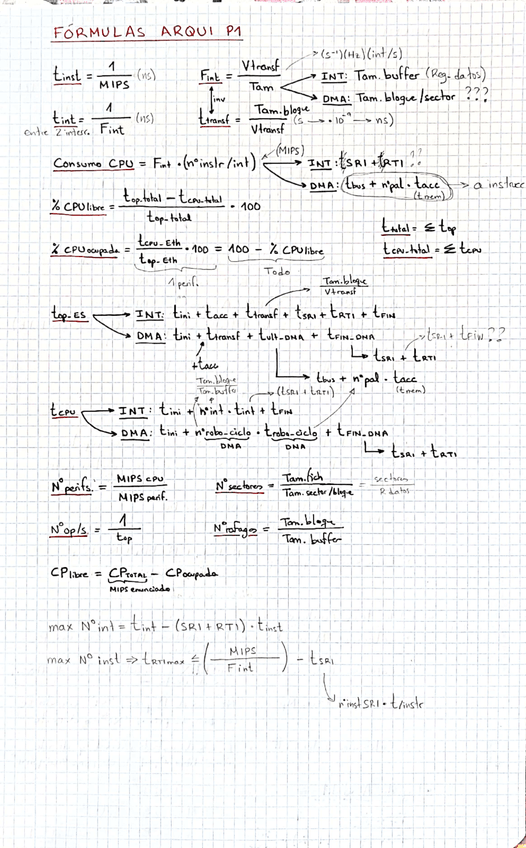 FÓRMULAS ARQUI P1
tinst = 1 / MIPS (ns)
Fint = Vtransf / Tam → (s⁻¹)(Hz)(int/s)
→ INT: Tam. buffer (Reg. datos)
→ DMA: Tam. bloque/sector ???
inv
tint = 1 / Fint (ns)
entre 2 interr.
ttransf = Tam. bloque / Vtransf (s → ·10⁻⁹ → ns)
Consumo CPU = Fint · (nº instr/int) (MIPS)
→ INT: tSRI + tRTI ??
→ DMA: (tbus + nºpal · tacc) (tmem) → a instrucc
% CPU libre = (top.total − tcpu.total) / top.total · 100
ttotal = Σ top
tcpu.total = Σ tcpu
% CPU ocupada = tcpu.Eth / top.Eth · 100 = 100 − % CPU libre
1 perif.
Todo
top_ES → INT: tini + tacc + ttransf + tSRI + tRTI + tFIN
Tam. bloque / Vtransf
→ DMA: tini + ttransf + tult_DMA + tFIN_DMA
→ tSRI + tRTI
tSRI + tFIN ??
+tacc
→ tbus + nºpal · tacc (tmem)
Tam. bloque / Tam. buffer
(tSRI + tRTI)
tcpu → INT: tini + nºint · tint + tFIN
→ DMA: tini + nºrobo_ciclo · trobo_ciclo + tFIN_DMA
DMA DMA
→ tSRI + tRTI
Nº perifs. = MIPS CPU / MIPS perif.
Nº sectores = Tam. fich / Tam. sector/bloque = sectores / R. datos
Nº op/s = 1 / top
Nº ráfagas = Tam. bloque / Tam. buffer
CP libre = CP TOTAL − CP ocupada
MIPS enunciado
max Nº int = tint − (SRI + RTI) · tinst
max Nº inst ⇒ tRTI max ≤ (MIPS / Fint) − tSRI
nº inst SRI · t/instr